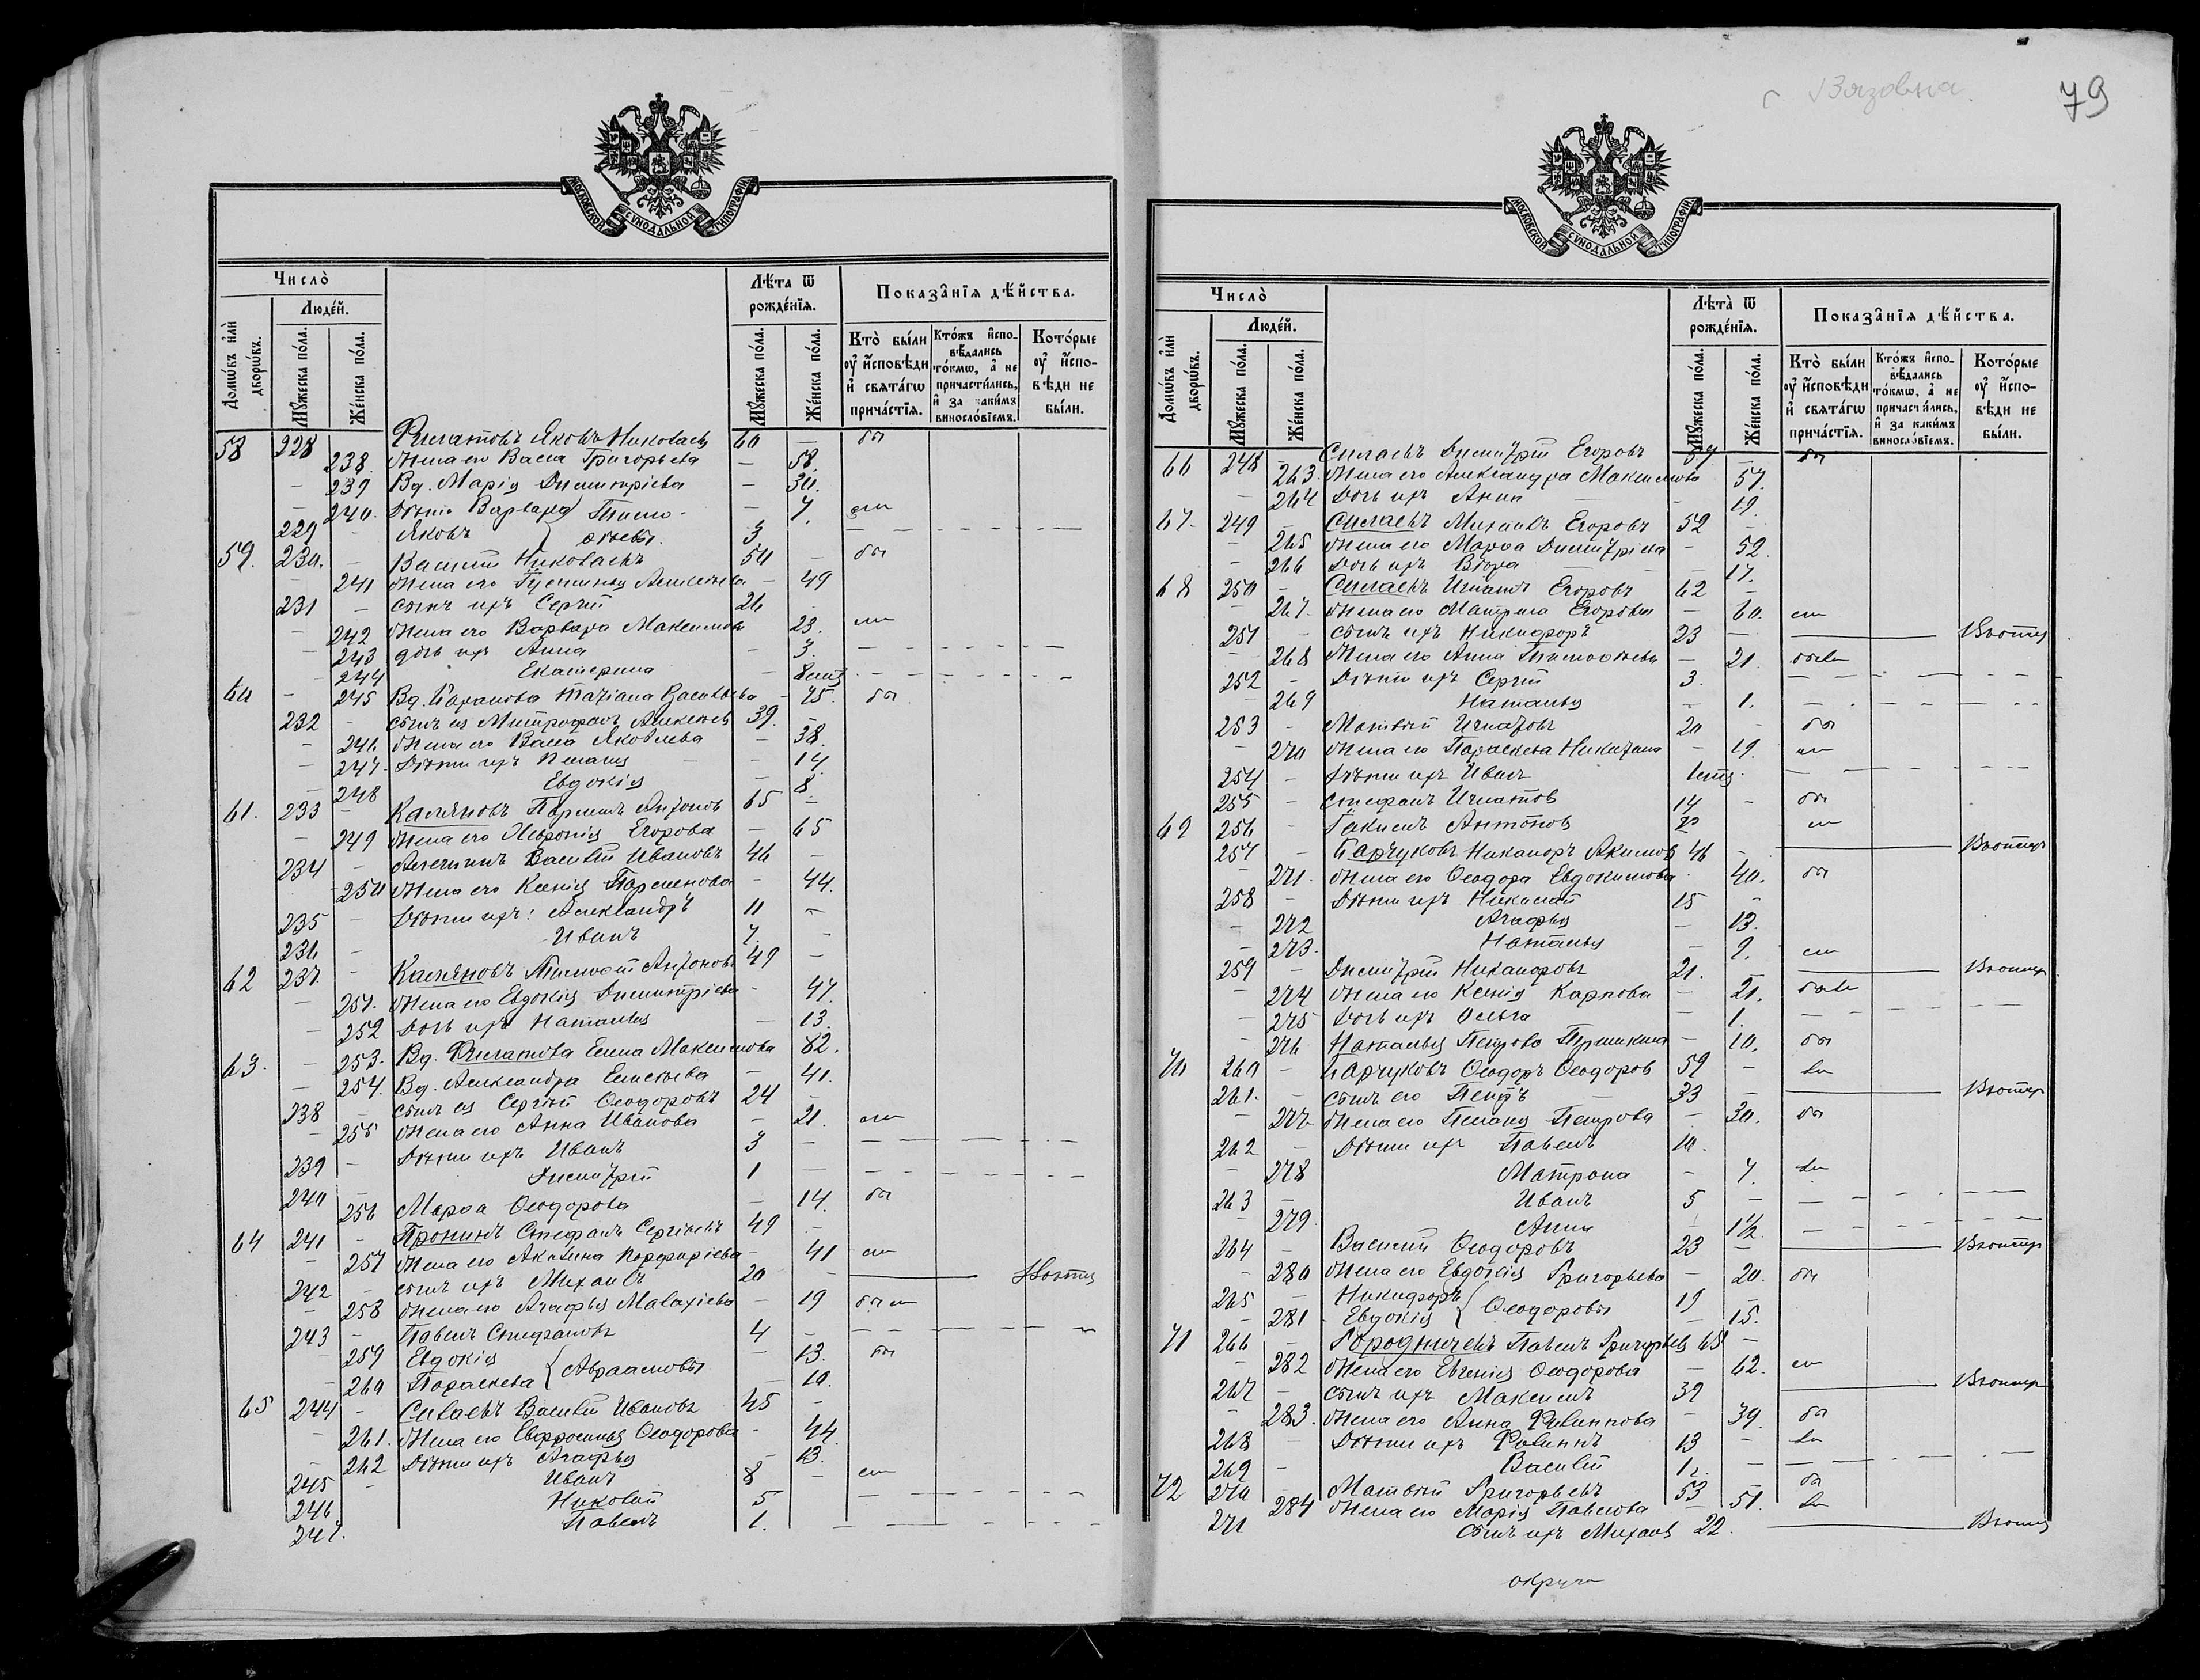 г Вязовна
79
МОСКОВСКОЙ СѴНОДАЛЬНОЙ ТИПОГРАФІИ
Число̀
Люде́й.
Домѡ́въ и҆лѝ дворѡ́въ.
Мꙋ́жеска по́ла.
Же́нска по́ла.
Лѣ́та ѿ рожде́нїѧ.
Мꙋ́жеска по́ла.
Же́нска по́ла.
Показа̑нїѧ дѣ́йства.
Кто̀ бы́ли ᲂу҆ и҆́сповѣди и҆ свѧта́гѡ прича́стїѧ.
Кто́жъ и҆спо-вѣ́дались то́кмѡ, а҆ не причасти́лись, и҆ за каки́мъ винослѡ́вїемъ.
Кото́рые ᲂу҆ и҆спо-вѣди не бы́ли.
58 228 Филатовъ Яковъ Николаев 60 — бы
238. Жена его Васса Григорьева — 58.
— 239 Вд. Марія Димитріева — 30.
— 240. Дѣти Варвара Тимо- — 7. ли
229 — Яковъ ѳѣевы. 3
59. 230. — Василій Николаевъ 50 — бы
— 241 Жена его Алексѣева — 49
231 — сынъ ихъ Сергій 26
— 242 Жена его Варвара Максимова 23. ли
243 дочь ихъ Анна — 3.
244 Екатерина —
60 — 245 Вд. Татіана Васильева — 75. бы
232 — сынъ ея Митрофанъ Алексѣев 39. —
— 246 Жена его Васса Яковлева — 38.
— 247. Дѣти ихъ Пелагія — 14.
— 248 Евдокія — 8
61. 233 — Парменъ Антонов 65 —
— 249 Жена его Ѳевронія Егорова — 65
234 — Василій Ивановъ 46 —
250 Жена его Ксенія Парменова — 44.
235 — Дѣти ихъ: Александръ 11 —
236 — Иванъ 7. —
62 237. — Тимоѳей Антоновъ 49 —
— 251. Жена его Евдокія Димитріева — 47.
— 252 Дочь ихъ Наталья — 13.
63. — 253. Вд. Филатова Елена Максимова 82.
— 254. Вд. Александра Елисѣева — 41.
238 — сынъ ея Сергѣй Ѳеодоровъ 24 —
— 255 Жена его Анна Иванова — 21. ли
239 — Дѣти ихъ Иванъ 3 —
240 — Димитрій 1 —
256 Марѳа Ѳеодорова — 14. бы
64 241 — Пронинъ Стефанъ Сергѣевъ 49 —
— 257 Жена его Акилина Порфиріева — 41 ли
242 — сынъ ихъ Михаилъ 20 —
— 258 Жена его Агафья Малахіева — 19 были
243 — Павелъ Стефановъ 4 —
— 259 Евдокія — 13. бы
— 260 Параскева Авраамовы — 10.
65 244 — Силаевъ Василій Ивановъ 45 —
— 261. Жена его Евфросинья Ѳеодорова — 44.
— 262 Дѣти ихъ Агафья — 13.
245 — Иванъ 8 — ли
246 Николай 5
247. Павелъ 1.
МОСКОВСКОЙ СѴНОДАЛЬНОЙ ТИПОГРАФІИ
Число̀
Люде́й.
Домѡ́въ и҆лѝ дворѡ́въ.
Мꙋ́жеска по́ла.
Же́нска по́ла.
Лѣ́та̀ ѿ рожде́нїѧ.
Мꙋ́жеска по́ла.
Же́нска по́ла.
Показа̑нїѧ дѣ́йства.
Кто̀ бы́ли ᲂу҆ и҆́сповѣди и҆ свѧта́гѡ прича́стїѧ.
Кто́жъ и҆спо-вѣ́дались то́кмѡ, а҆ не причасти́лись, и҆ за каки́мъ винослѡ́вїемъ.
Кото́рые ᲂу҆ и҆спо-вѣди не бы́ли.
66 248 — Силаевъ Димитрій Егоровъ 59 — бы
263. Жена его Александра Максимова 57.
— 264 Дочь ихъ Анна 19.
67. 249 — Силаевъ Михаилъ Егоровъ 52 —
— 265 Жена его Марѳа Димитріева — 52.
— 266 Дочь ихъ Вѣра — 17.
68 250 — Силаевъ Игнатъ Егоровъ 62 —
— 267. Жена его Матрона Егорова — 60. ли
251 — сынъ ихъ Никифоръ 23 —
— 268 Жена его Анна Тимоѳеева — 21. были
252 — Дѣти ихъ Сергій 3.
— 269 Наталья — 1.
253 — Матвѣй Игнатовъ 20 — бы
— 270 Жена его Параскева — 19. ли
254 — Дѣти ихъ Иванъ
255 — Стефанъ Игнатов 14 — бы
69 256 — Антонов ли
257 — Никаноръ Акимов 46 —
— 271. Жена его Ѳеодора Евдокимова 40. бы
258 — Дѣти ихъ Николай 15 —
— 272 Агафья — 13.
— 273. Наталья — 9. ли
259 — Димитрій Никаноровъ 21. —
— 274 Жена его Ксенія Карпова — 21. были
— 275 Дочь ихъ Ольга — 1.
— 276 Наталья Петрова — 10. бы
70 260 — Ѳеодоръ Ѳеодоров 59 — ли
261. — сынъ его Петръ — 33 —
— 277 Жена его Пелагія Петрова — 30. бы
262 — Дѣти ихъ Павелъ 10.
— 278 Матрона — 7. ли
263 — Иванъ 5 —
— 279. Анна — 1½.
264 — Василій Ѳеодоровъ 23 —
— 280 Жена его Евдокія Григорьева — 20. бы
265 — Никифоръ 19 —
— 281 Евдокія Ѳеодоровы — 15.
71 266 — Городничевъ Павелъ Григорьев 65 —
— 282 Жена его Евгенія Ѳеодорова — 62. ли
267 — сынъ ихъ Максимъ 39
— 283. Жена его Анна Филиппова — 39. бы
268 — Дѣти ихъ Филиппъ 13 — ли
269 — Василій 1
72 270 — Матвѣй Григорьевъ 53 — бы
284 Жена его Марія Павлова — 51. ли
271 сынъ ихъ Михаилъ 22.